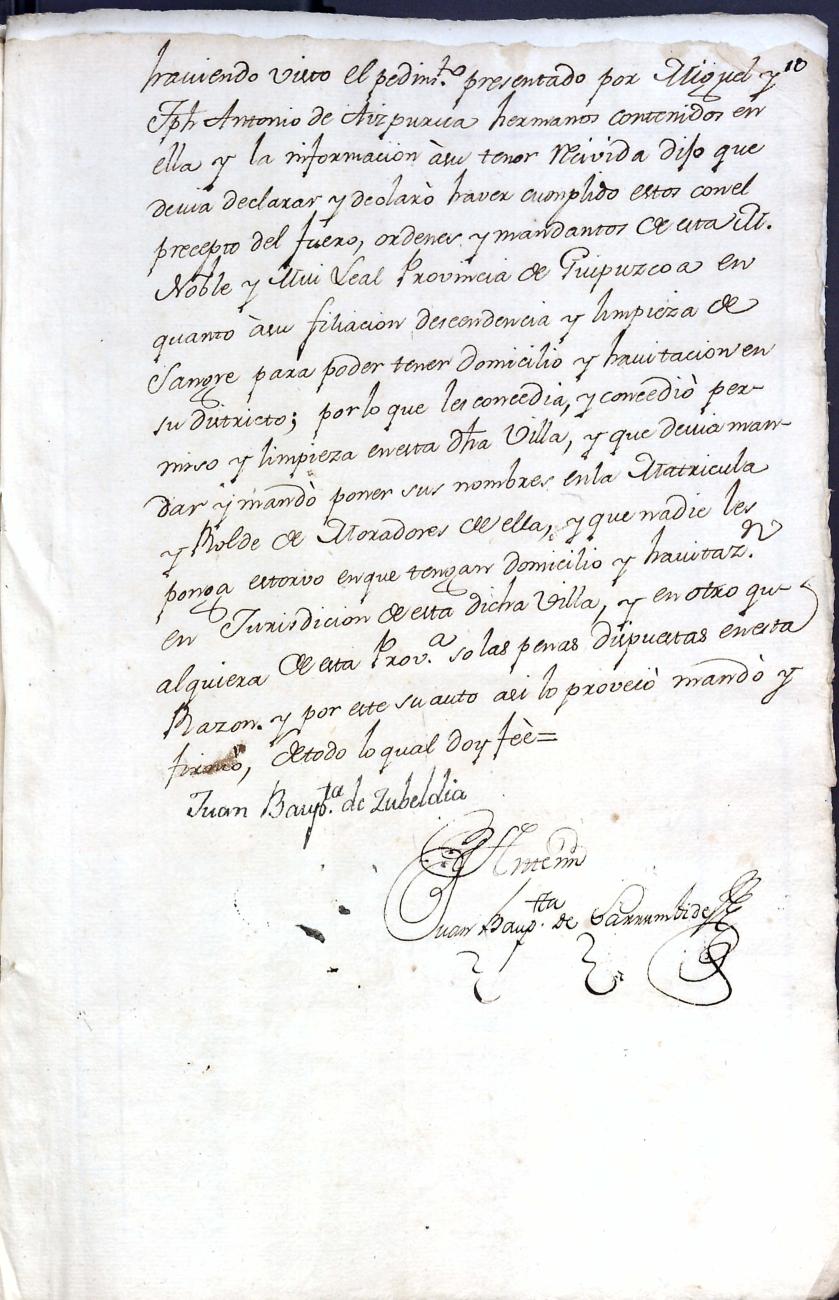 10
haviendo visto el pedim.to presentado por Miguel y
Jph Antonio de Aizpurua hermanos contenidos en
ella y la informacion àsu tenor Recivida dijo que
devia declarar y declarò haver cumplido estos conel
precepto del fuero, ordenes y mandantos de esta M.
Noble y Mui Leal Provincia de Guipuzcoa en
quanto àsu filiacion descendencia y limpieza de
Sangre para poder tener domicilio y havitacion en
su districto; por lo que les concedia, y concediò per-
miso y limpieza enesta dha Villa, y que devia man-
dar y mandò poner sus nombres enla Matricula
y Rolde de Moradores de ella, y que nadie les
ponga estorvo enque tengan domicilio y havitaz.on
en Jurisdicion de esta dicha Villa, y en otro qu-
alquiera de esta Prov.a so las penas dispuestas enesta
Razon. y por este su auto asi lo proveiò mandò y
firmò, de todo lo qual doy feè=
Juan Baup.ta de Zubeldia
Antemi
Juan Baup.tta de Larrumbide